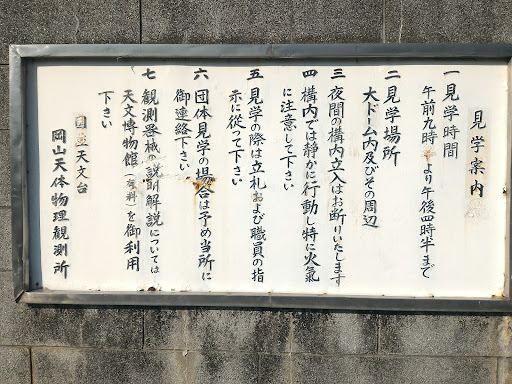 見学案内
一 見学時間
午前九時 より午後四時半まで
二 見学場所
大ドーム内及びその周辺
三 夜間の構内立入はお断りいたします
四 構内では静かに行動し特に火氣
に注意して下さい
五 見学の際は立札および職員の指
示に従って下さい
六 団体見学の場合は予め当所に
御連絡下さい
七 観測器械の説明解説については
天文博物館(有料)を御利用
下さい
国立天文台
岡山天体物理観測所